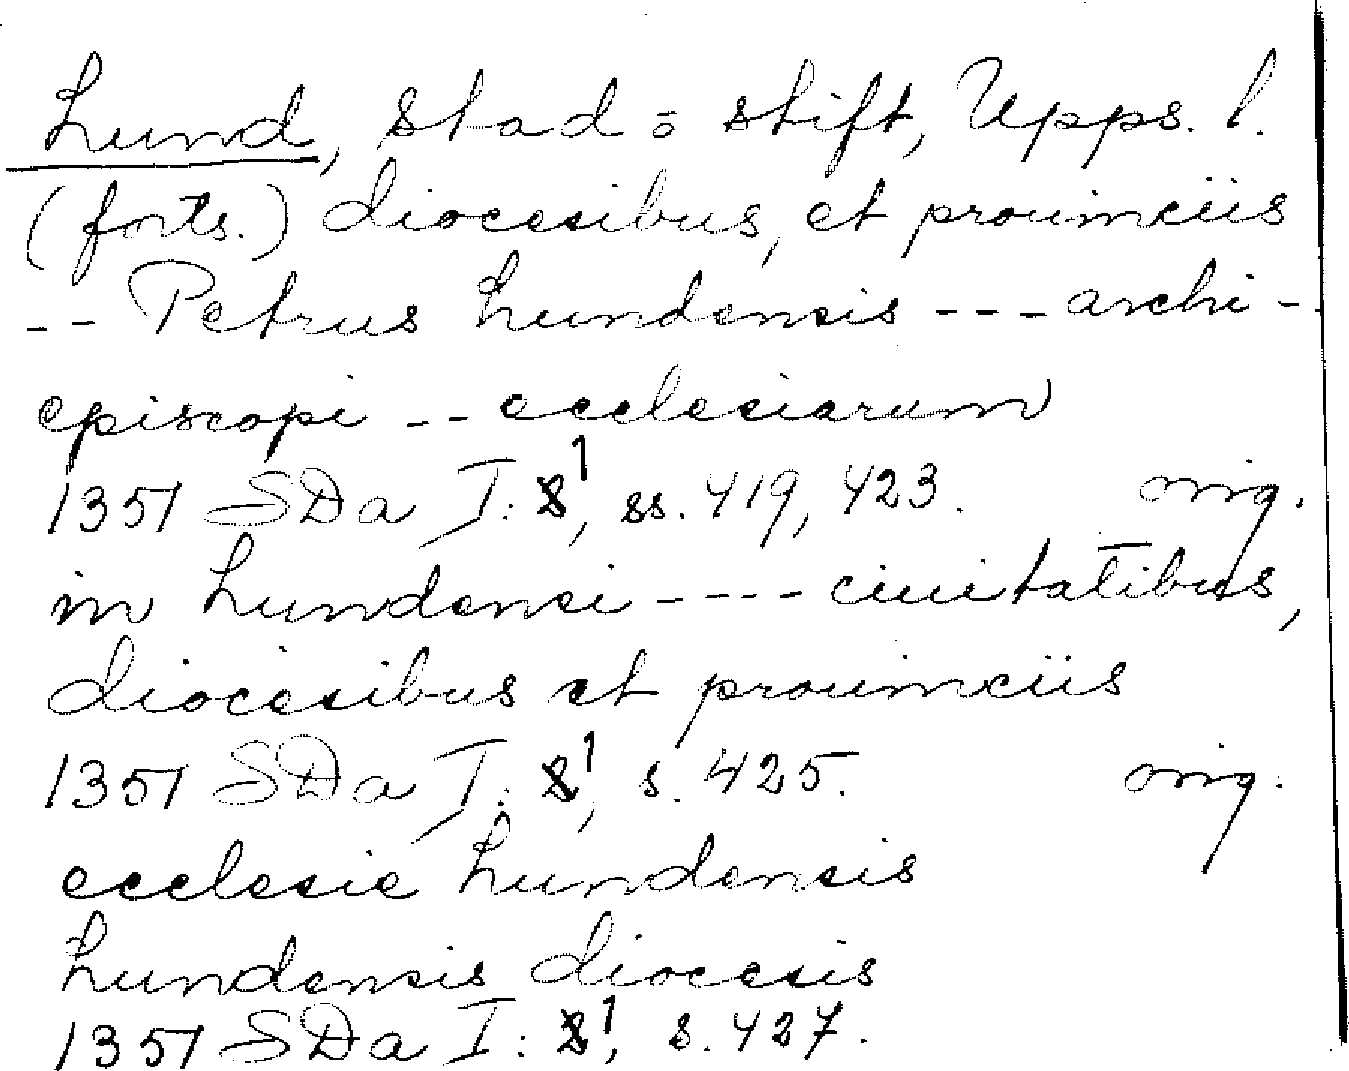 Lund, stad o stift, Upps. l.
(forts.) diocesibus, et prouinciis
-- Petrus Lundensis --- archi-
episcopi -- ecclesiarum
1351 SDa I: 1, ss. 419, 423. orig.
in Lundensi ---- ciuitatibus,
diocesibus et prouinciis
1351 SDa I: 1, s. 425. orig.
ecclesie Lundensis
Lundensis diocesis
1351 SDa I: 1, s. 427.